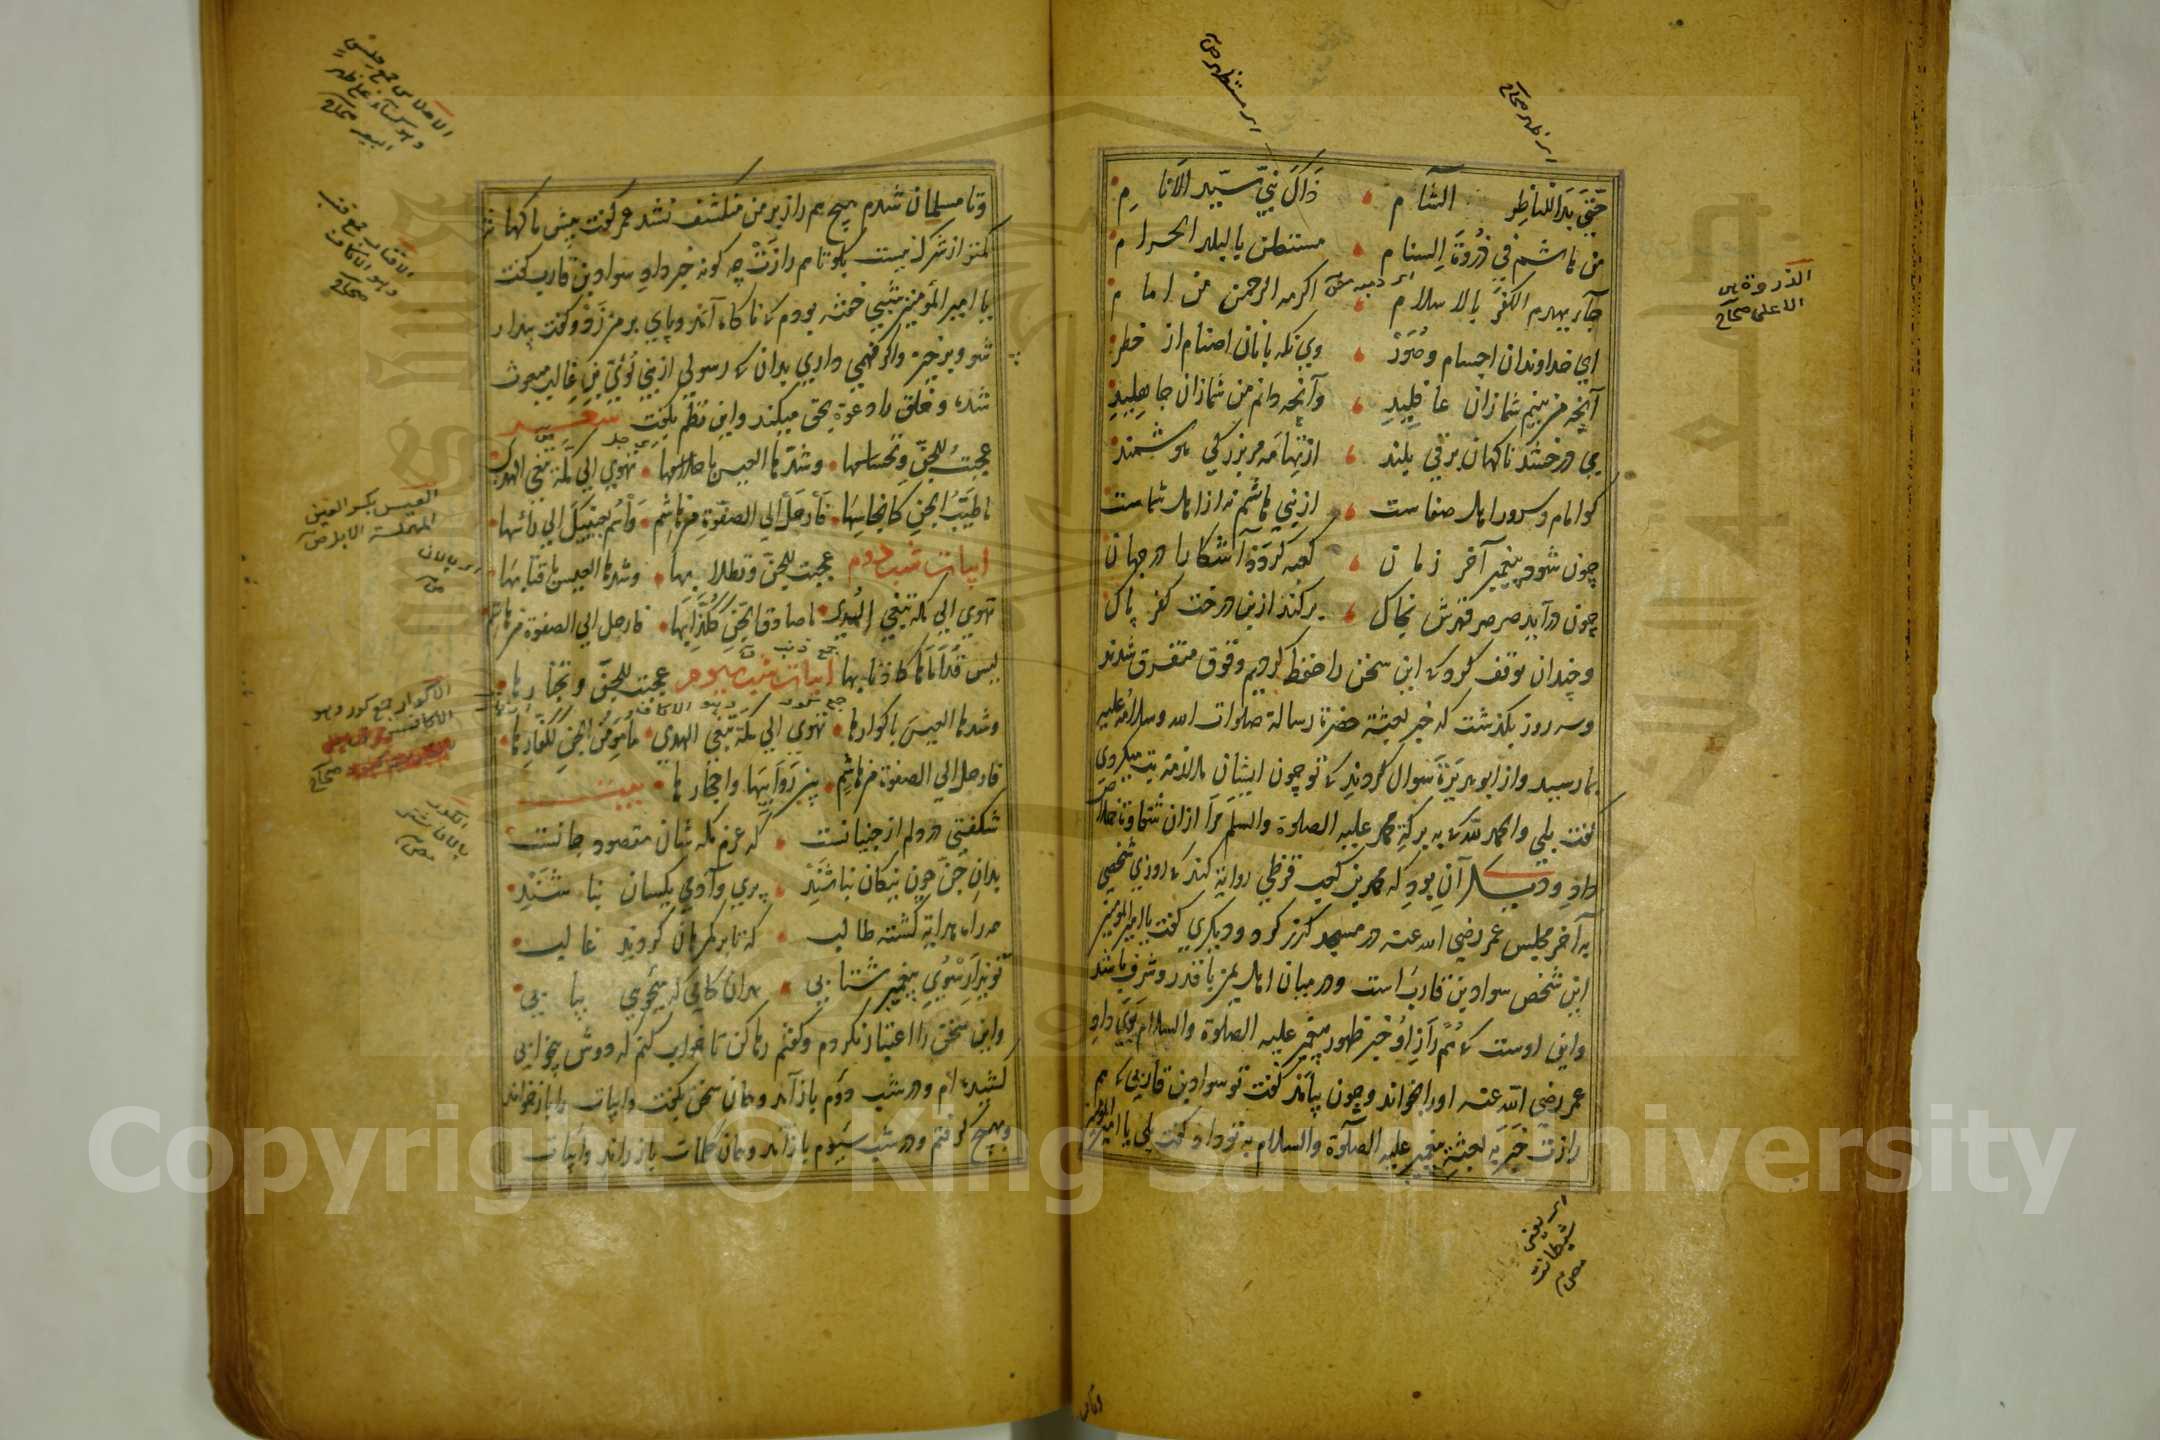 حتی بدا للناظر الشام ذاک نبی سید الانام
من هاشم فی ذروة السنام مستعلن بالبلد الحرام
جاء یهدم الکفر بالاسلام اکرمه الرحمن من امام
ای خداوندان اجسام وصور وی تکه بانان اصنام از خطر
آنچه من بینم شمازان غافلید وآنچه دانم من شمازان جاهلید
می درخشد ناکهان برقی بلند از تهامه هر بزرکی هوشمند
کو امام وسرور اهل صفاست از بنی هاشم نه از اهل شماست
چون شود پیغمبر آخر زمان کعبه کردد آشکارا در جهان
چون درآید صرصر قهرش بخاک برکند ازبن درخت کفر پاک
وچندان توقف کرد که این سخن را حفظ کردیم وقوق متفرق شدند
وسه روز بکذشت که خبر بعثة حضرة رسالة صلوات الله وسلامه علیه
بما رسید واز ابو هریرة سوال کردند که تو چون ایشان ملازمة بت میکردی
کفت بلی والحمد لله که به برکة محمد علیه الصلوة والسلم مرا ازان شقاوة خلاص
داد ودیکر آن بود که محمد بن کعب قرظی روایة کند که روزی شخصی
به آخر مجلس عمر رضی الله عنه در مسجد کذر کرد ودیکری کفت یا امیر المومنین
این شخص سواد بن قارب است ودرمیان اهل یمن با قدر وشرف باشد
واین اوست که هم راز او خبر ظهور پیغمبر علیه الصلوة والسلام بوی داد
عمر رضی الله عنه اورا بخواند وچون بیامد کفت تو سواد بن قاربی که هم
رازت خبر به بعثة پیغمبر علیه الصلوة والسلام به تو داد کفت بلی یا امیر المومنین
ای ظهر صحاح
ای مستظهر ص
الذروة
الاعلی صحاح
وتا مسلمان شدم هیچ هم راز بر من منکشف نشد عمر کفت پیش ما کهانة
کمتر از شرک نیست بکو تا هم رازت چه کونه خبر داد سواد بن قارب کفت
یا امیر المؤمنین شبی خفته بودم که ناکاه آمد وپای بر من زد وکفت بیدار
شو وبرخیز واکر فهمی داری بدان که رسولی از بنی لوئی بن غالب مبعوث
شده وخلق را دعوة بحق میکند واین نظم بکفت شعر
عجبت للجن وتحساسها وشدها العیس باحلاسها تهوی الی مکة تبغی الهدی
ما طیب الجن کانجاسها فارحل الی الصفوة من هاشم واسم بعینیک الی راسها
ابیات شب دوم عجبت للجن وتطلابها وشدها العیس باقتابها
تهوی الی مکة تبغی الهدی ما صادق الجن ککذابها فارحل الی الصفوة من هاشم
لیس قداماها کاذنابها ابیات شب سوم عجبت للجن وتخبارها
وشدها العیس باکوارها تهوی الی مکة تبغی الهدی ما مؤمن الجن ککفارها
فارحل الی الصفوة من هاشم بین روابیها واحجارها بیت
شکفتی در دلم از جنیانست که عزم مکه شان مقصود جانست
بدان جن چون نیکان نباشند پری وآدمی یکسان نباشند
همه راه هدایة کشته طالب که تا برکمرهان کردند غالب
تو نیز ار سوی پیغمبر شتابی بدان کامی که میجویی بیابی
واین سخن را اعتبار نکردم وکفتم رها کن تا خواب کنم که دوش بیخوابی
کشیده ام ودر شب دوم باز آمد وهمان سخن بکفت وابیات را باز خواند
وهیچ کرفتم ودر شب سیوم باز آمد وهمان کلمات باز راند وابیات
العیس بکسر العین
المهملة الابل ص
ای پالان
الاکوار جمع کور وهو
صحاح
وتا
Copyright © King Saud University